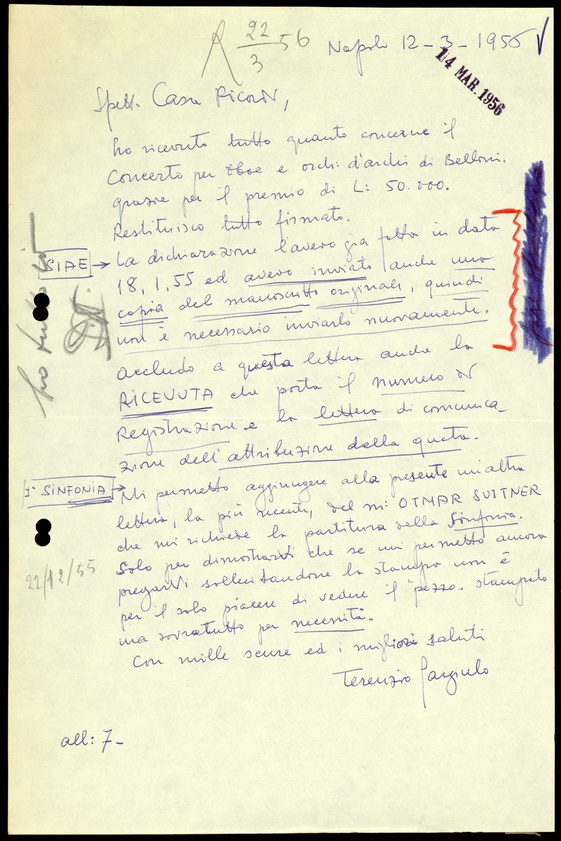 R 22/3 56
Napoli 12-3-1956
14 MAR. 1956
Spett. Casa Ricordi,
ho ricevuto tutto quanto concerne il
Concerto per oboe e orch: d'archi di Bellini.
grazie per il premio di L: 50.000.
Restituisco tutto firmato.
SIAE → La dichiarazione l'avevo già fatta in data
18,1,55 ed avevo inviato anche una
copia del manoscritto originale, quindi
non è necessario inviarlo nuovamente.
accludo a questa lettera anche la
RICEVUTA che porta il numero di
Registrazione e la lettera di comunica_
zione dell'attribuzione della quota.
1ª SINFONIA → Mi permetto aggiungere alla presente un'altra
lettera, la più recente, del m: OTMAR SUITNER
che mi richiede la partitura della Sinfonia.
Solo per dimostrarvi che se mi permetto ancora
pregarvi sollecitandone la stampa non è
22/12/55
per il solo piacere di vedere il "pezzo" stampato
ma sovratutto per necessità.
Con mille scuse ed i migliori saluti
Terenzio Gargiulo
all: 7-